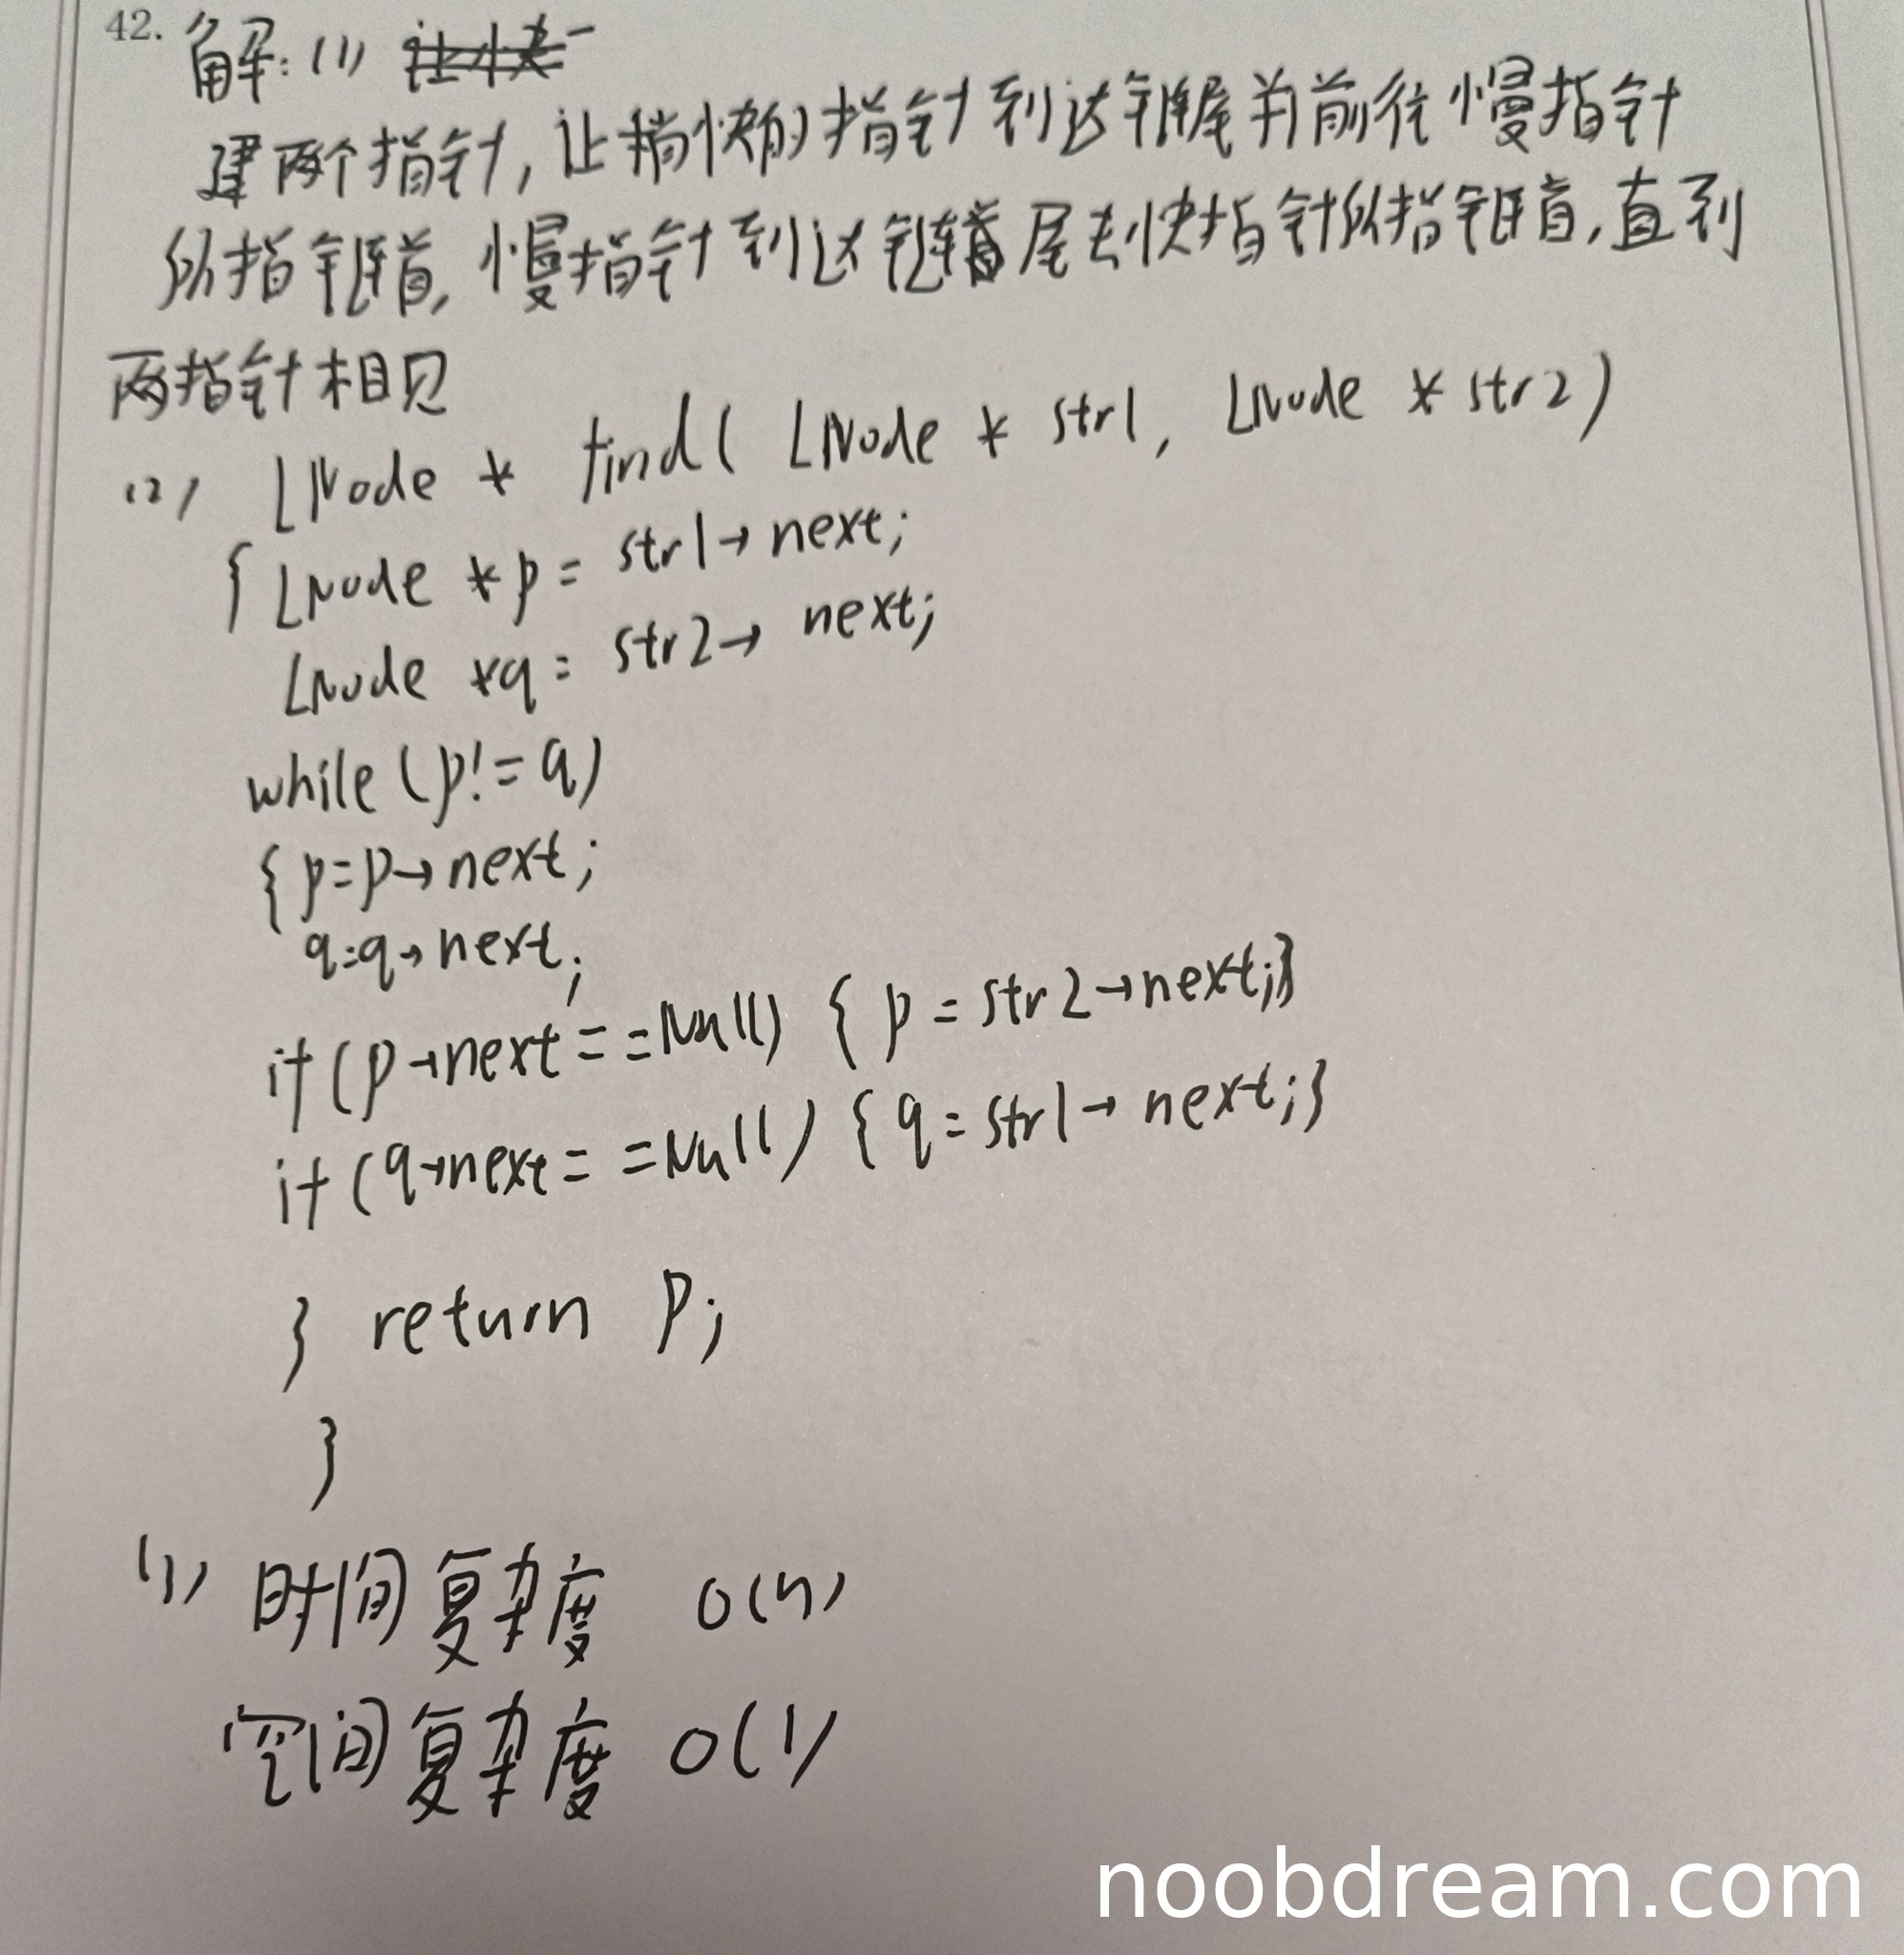 42. 解:(1)
建两个指针,让稍快的指针到达链尾并前往慢指针
所指链首,慢指针到达链尾去快指针所指链首,直到
两指针相见
(2) LNode * find( LNode * str1, LNode * str2)
{ LNode *p = str1→next;
LNode *q = str2→next;
while (p!=q)
{ p=p→next;
q=q→next;
if (p→next==Null) { p = str2→next;}
if (q→next==Null) { q = str1→next;}
} return p;
}
(3) 时间复杂度 O(n)
空间复杂度 O(1)
noobdream.com